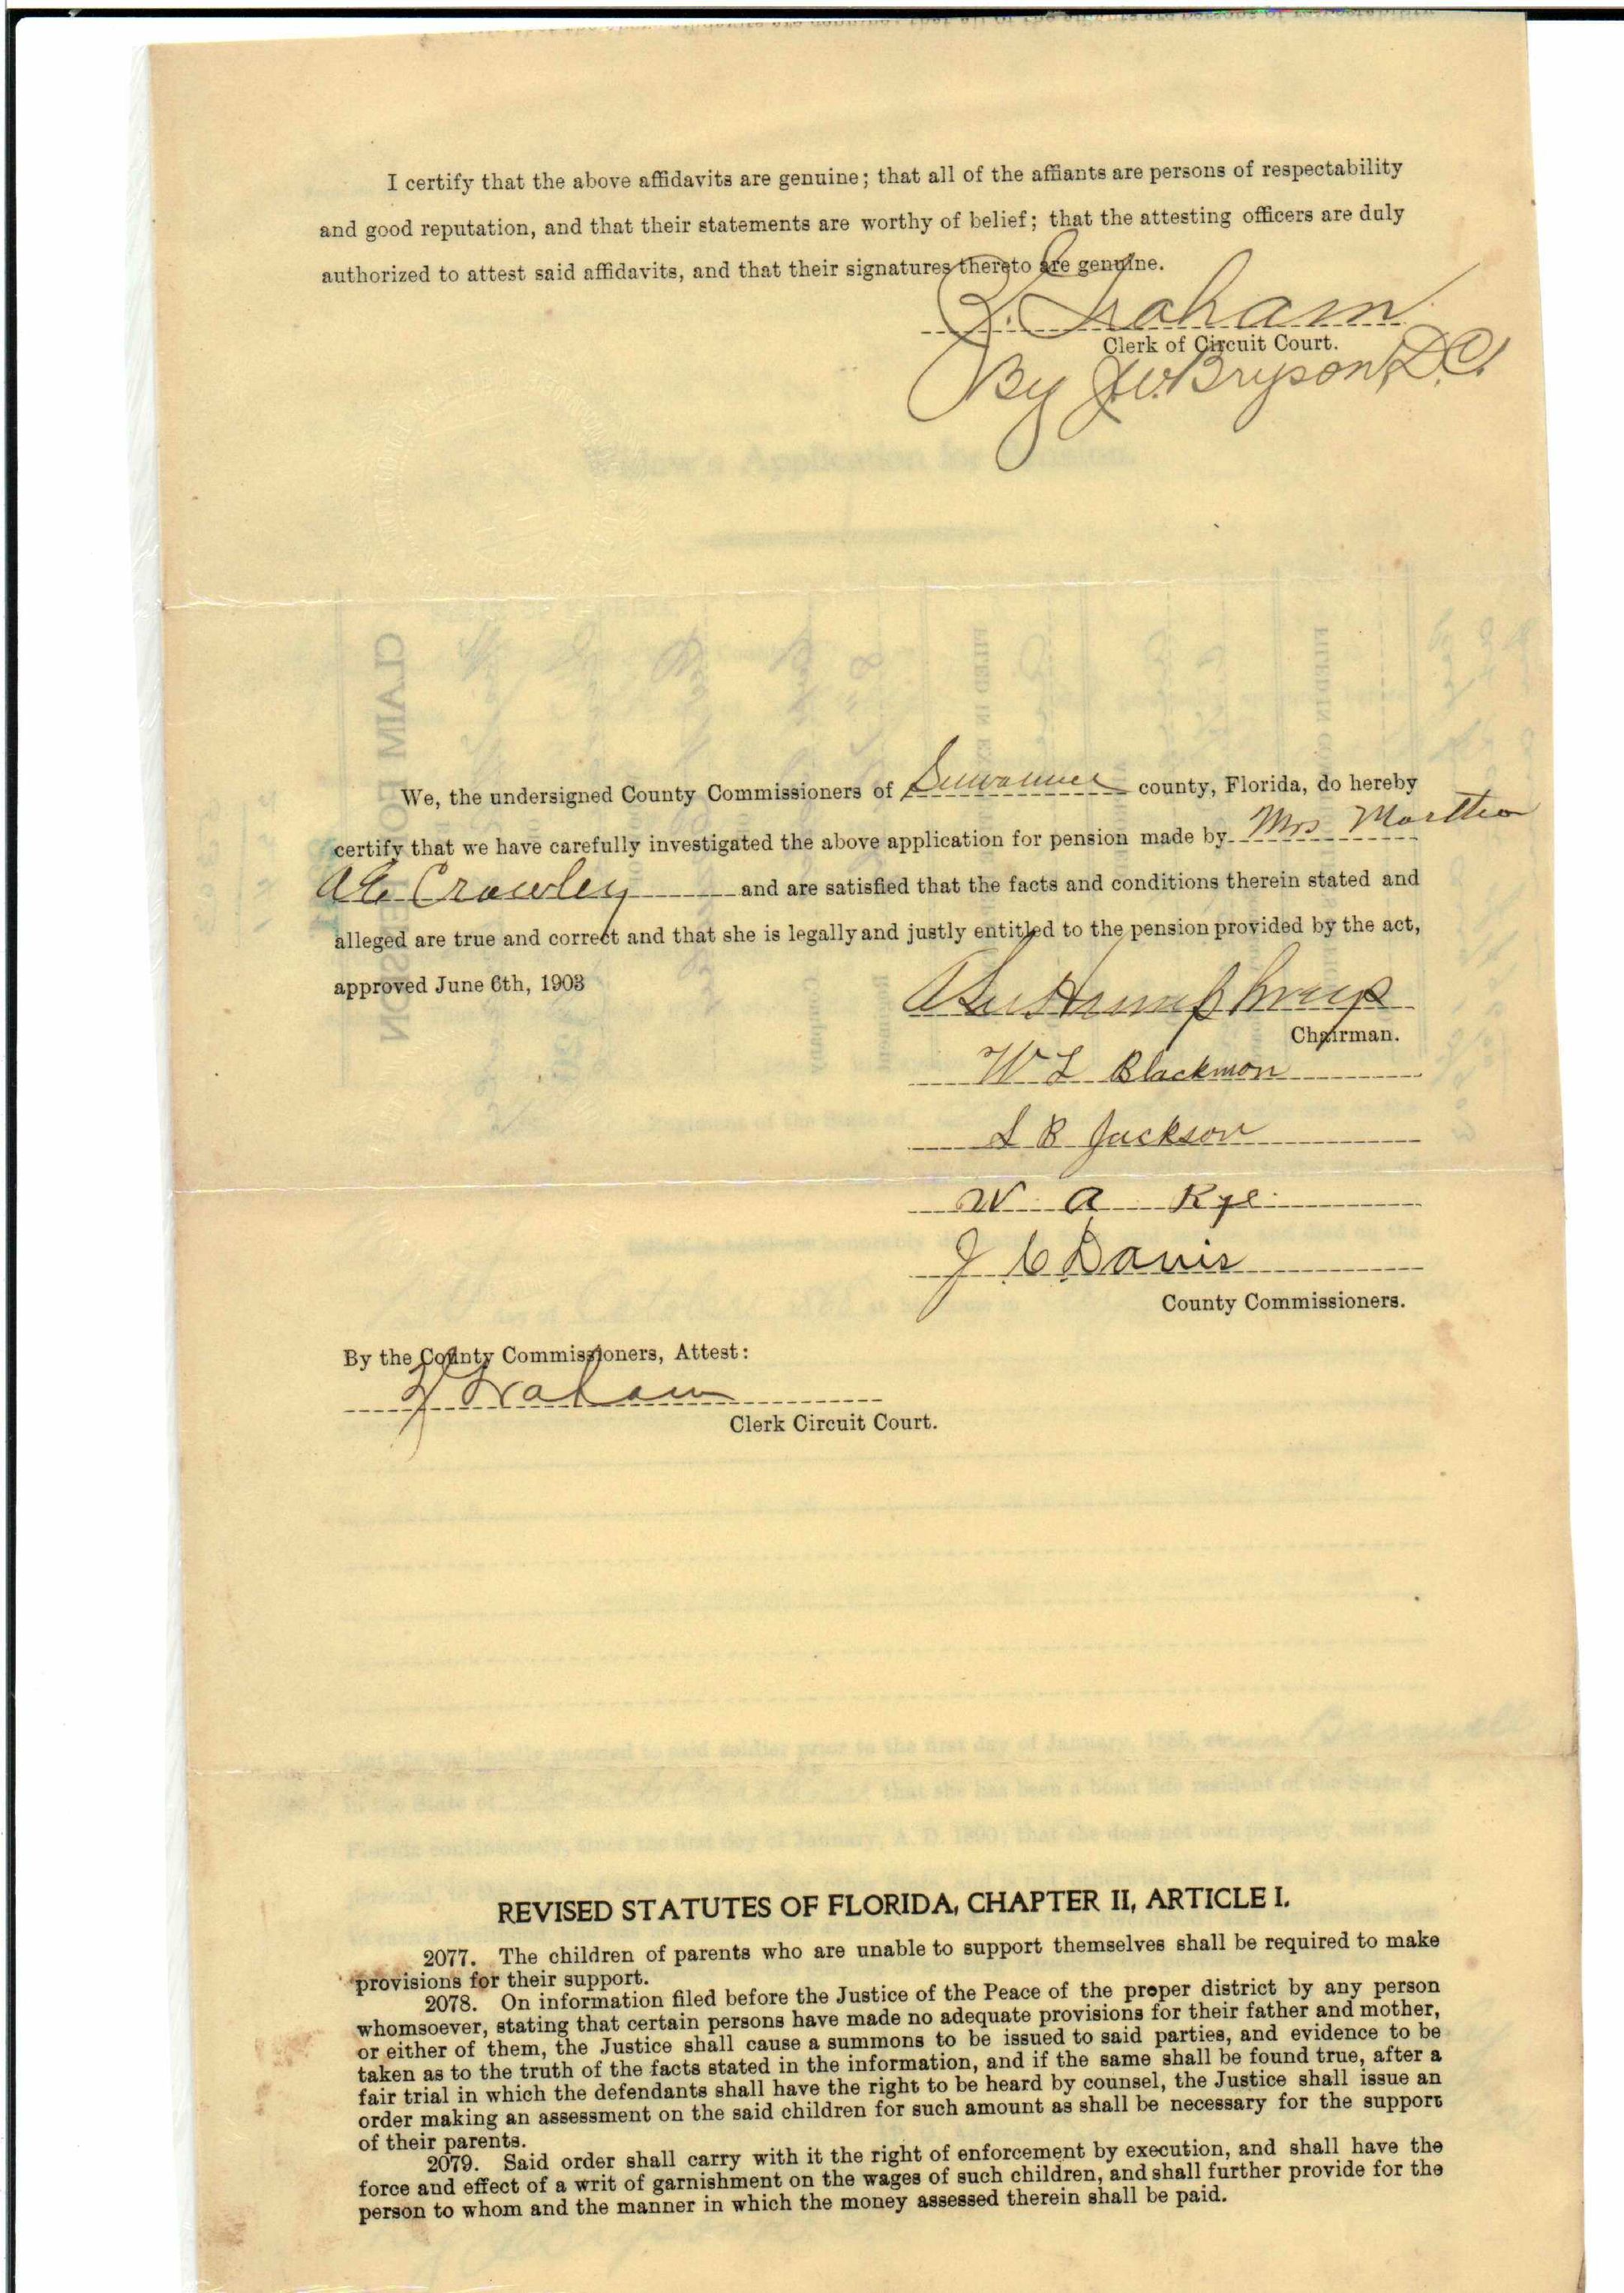 I certify that the above affidavits are genuine; that all of the affiants are persons of respectability
and good reputation, and that their statements are worthy of belief; that the attesting officers are duly
authorized to attest said affidavits, and that their signatures thereto are genuine.
Graham
Clerk of Circuit Court.
By J.W. Bryson, D.C.
Widow's Application for Pension.
CLAIM FOR PENSION
We, the undersigned County Commissioners of Suwannee county, Florida, do hereby
certify that we have carefully investigated the above application for pension made by Mrs Martha
A E Crowley and are satisfied that the facts and conditions therein stated and
alleged are true and correct and that she is legally and justly entitled to the pension provided by the act,
approved June 6th, 1903
Humphreys
Chairman.
W L Blackmon
S B Jackson
W A Kyle
J C Davis
County Commissioners.
By the County Commissioners, Attest:
Graham
Clerk Circuit Court.
REVISED STATUTES OF FLORIDA, CHAPTER II, ARTICLE I.
2077. The children of parents who are unable to support themselves shall be required to make
provisions for their support.
2078. On information filed before the Justice of the Peace of the proper district by any person
whomsoever, stating that certain persons have made no adequate provisions for their father and mother,
or either of them, the Justice shall cause a summons to be issued to said parties, and evidence to be
taken as to the truth of the facts stated in the information, and if the same shall be found true, after a
fair trial in which the defendants shall have the right to be heard by counsel, the Justice shall issue an
order making an assessment on the said children for such amount as shall be necessary for the support
of their parents.
2079. Said order shall carry with it the right of enforcement by execution, and shall have the
force and effect of a writ of garnishment on the wages of such children, and shall further provide for the
person to whom and the manner in which the money assessed therein shall be paid.